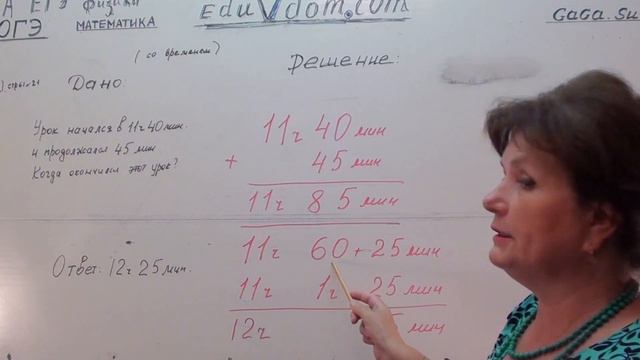 А ЕГЭ Физики
ОГЭ МАТЕМАТИКА
EduVdom.com
GaGa.Su
(со временем)
Дано:
Решение:
Урок начался в 11ч 40 мин.
и продолжался 45 мин
Когда окончился этот урок?
11ч 40 мин
+ 45 мин
11ч 85 мин
11ч 60 + 25 мин
11ч 1ч 25 мин
12ч 5 мин
Ответ: 12ч 25 мин.